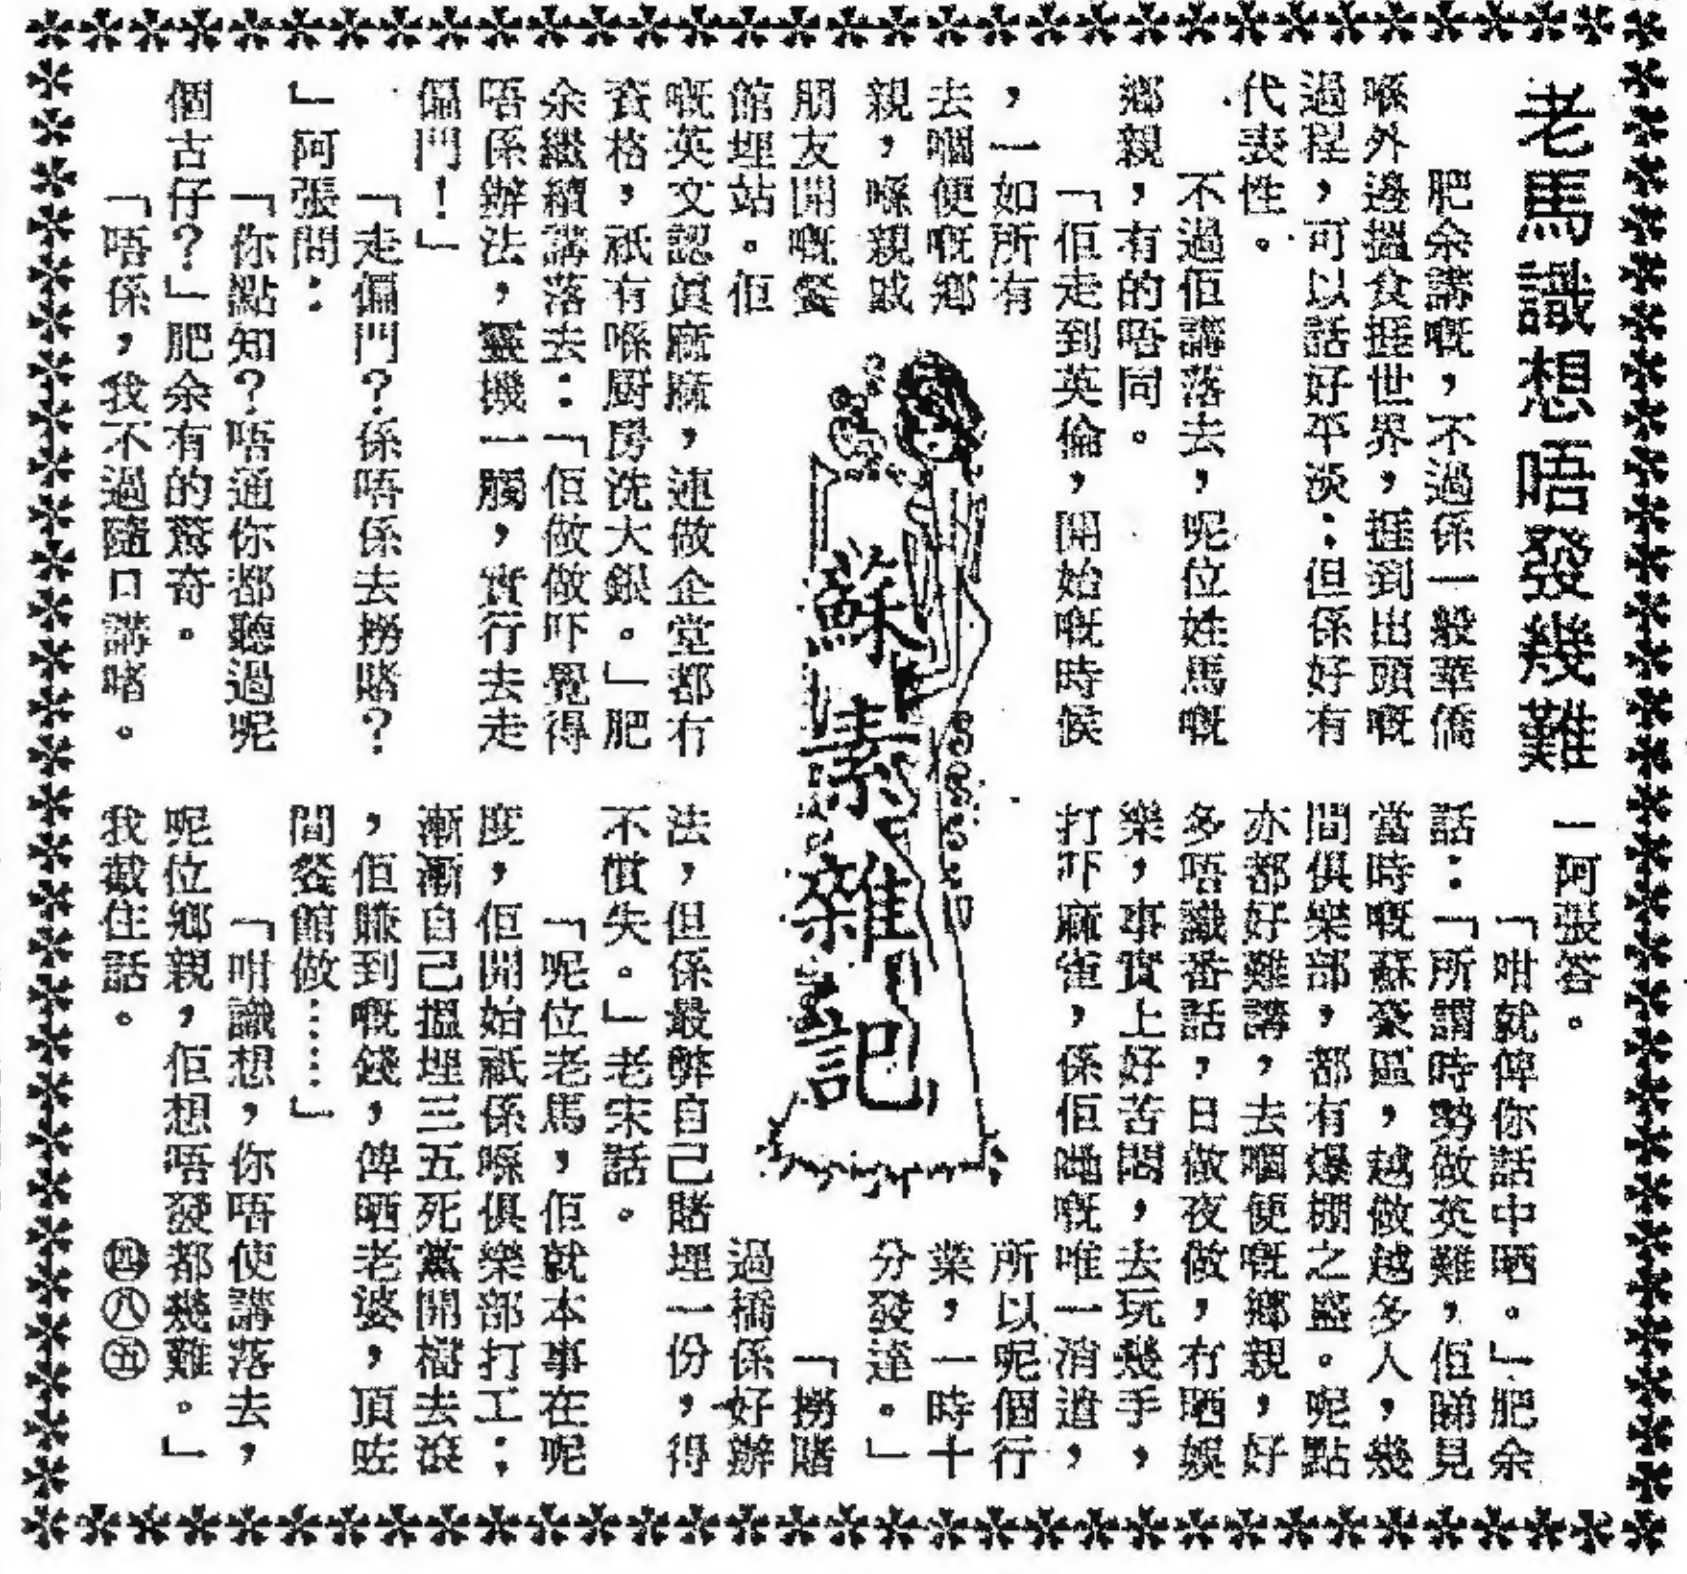 老馬識想唔發幾難
肥余講嘅，不過係一般華僑
喺外邊搵食捱世界，捱到出頭嘅
過程，可以話好平淡：但係好有
代表性。
不過佢講落去，呢位姓馬嘅
鄉親，有的唔同。
「佢走到英倫，開始嘅時候
，一如所有
去嗰便嘅鄉
親，喺親戚
朋友開嘅餐
館埋站。佢
嘅英文認眞麻麻，連做企堂都冇
資格，祇有喺厨房洗大銀。」肥
余繼續講落去：「佢做做吓覺得
唔係辦法，靈機一觸，實行去走
偏門！」
「走偏門？係唔係去撈賭？
」阿張問：
「你點知？唔通你都聽過呢
個古仔？」肥余有的驚奇。
「唔係，我不過隨口講啫。
蘇素雜記
」阿張答。
「咁就俾你話中晒。」肥余
話：「所謂時勢做英雄，佢睇見
當時嘅蘇豪區，越做越多人，幾
間俱樂部，都有爆棚之盛。呢點
亦都好難講，去嗰便嘅鄉親，好
多唔識番話，日做夜做，冇晒娛
樂，事實上好苦悶，去玩幾手，
打吓麻雀，係佢哋嘅唯一消遣，
所以呢個行
業，一時十
分發達。」
「撈賭
過橋係好辦
法，但係最弊自己賭埋一份，得
不償失。」老宋話。
「呢位老馬，佢就本事在呢
度，佢開始祇係喺俱樂部打工：
漸漸自己搵埋三五死黨開檔去滾
，佢賺到嘅錢，俾晒老婆，頂咗
間餐館做……」
「咁識想，你唔使講落去，
呢位鄉親，佢想唔發都幾難。」
我截住話。
㊃㊇㊄